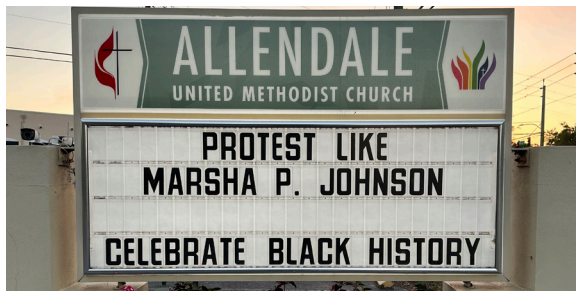 ALLENDALE
UNITED METHODIST CHURCH
PROTEST LIKE
MARSHA P. JOHNSON
CELEBRATE BLACK HISTORY